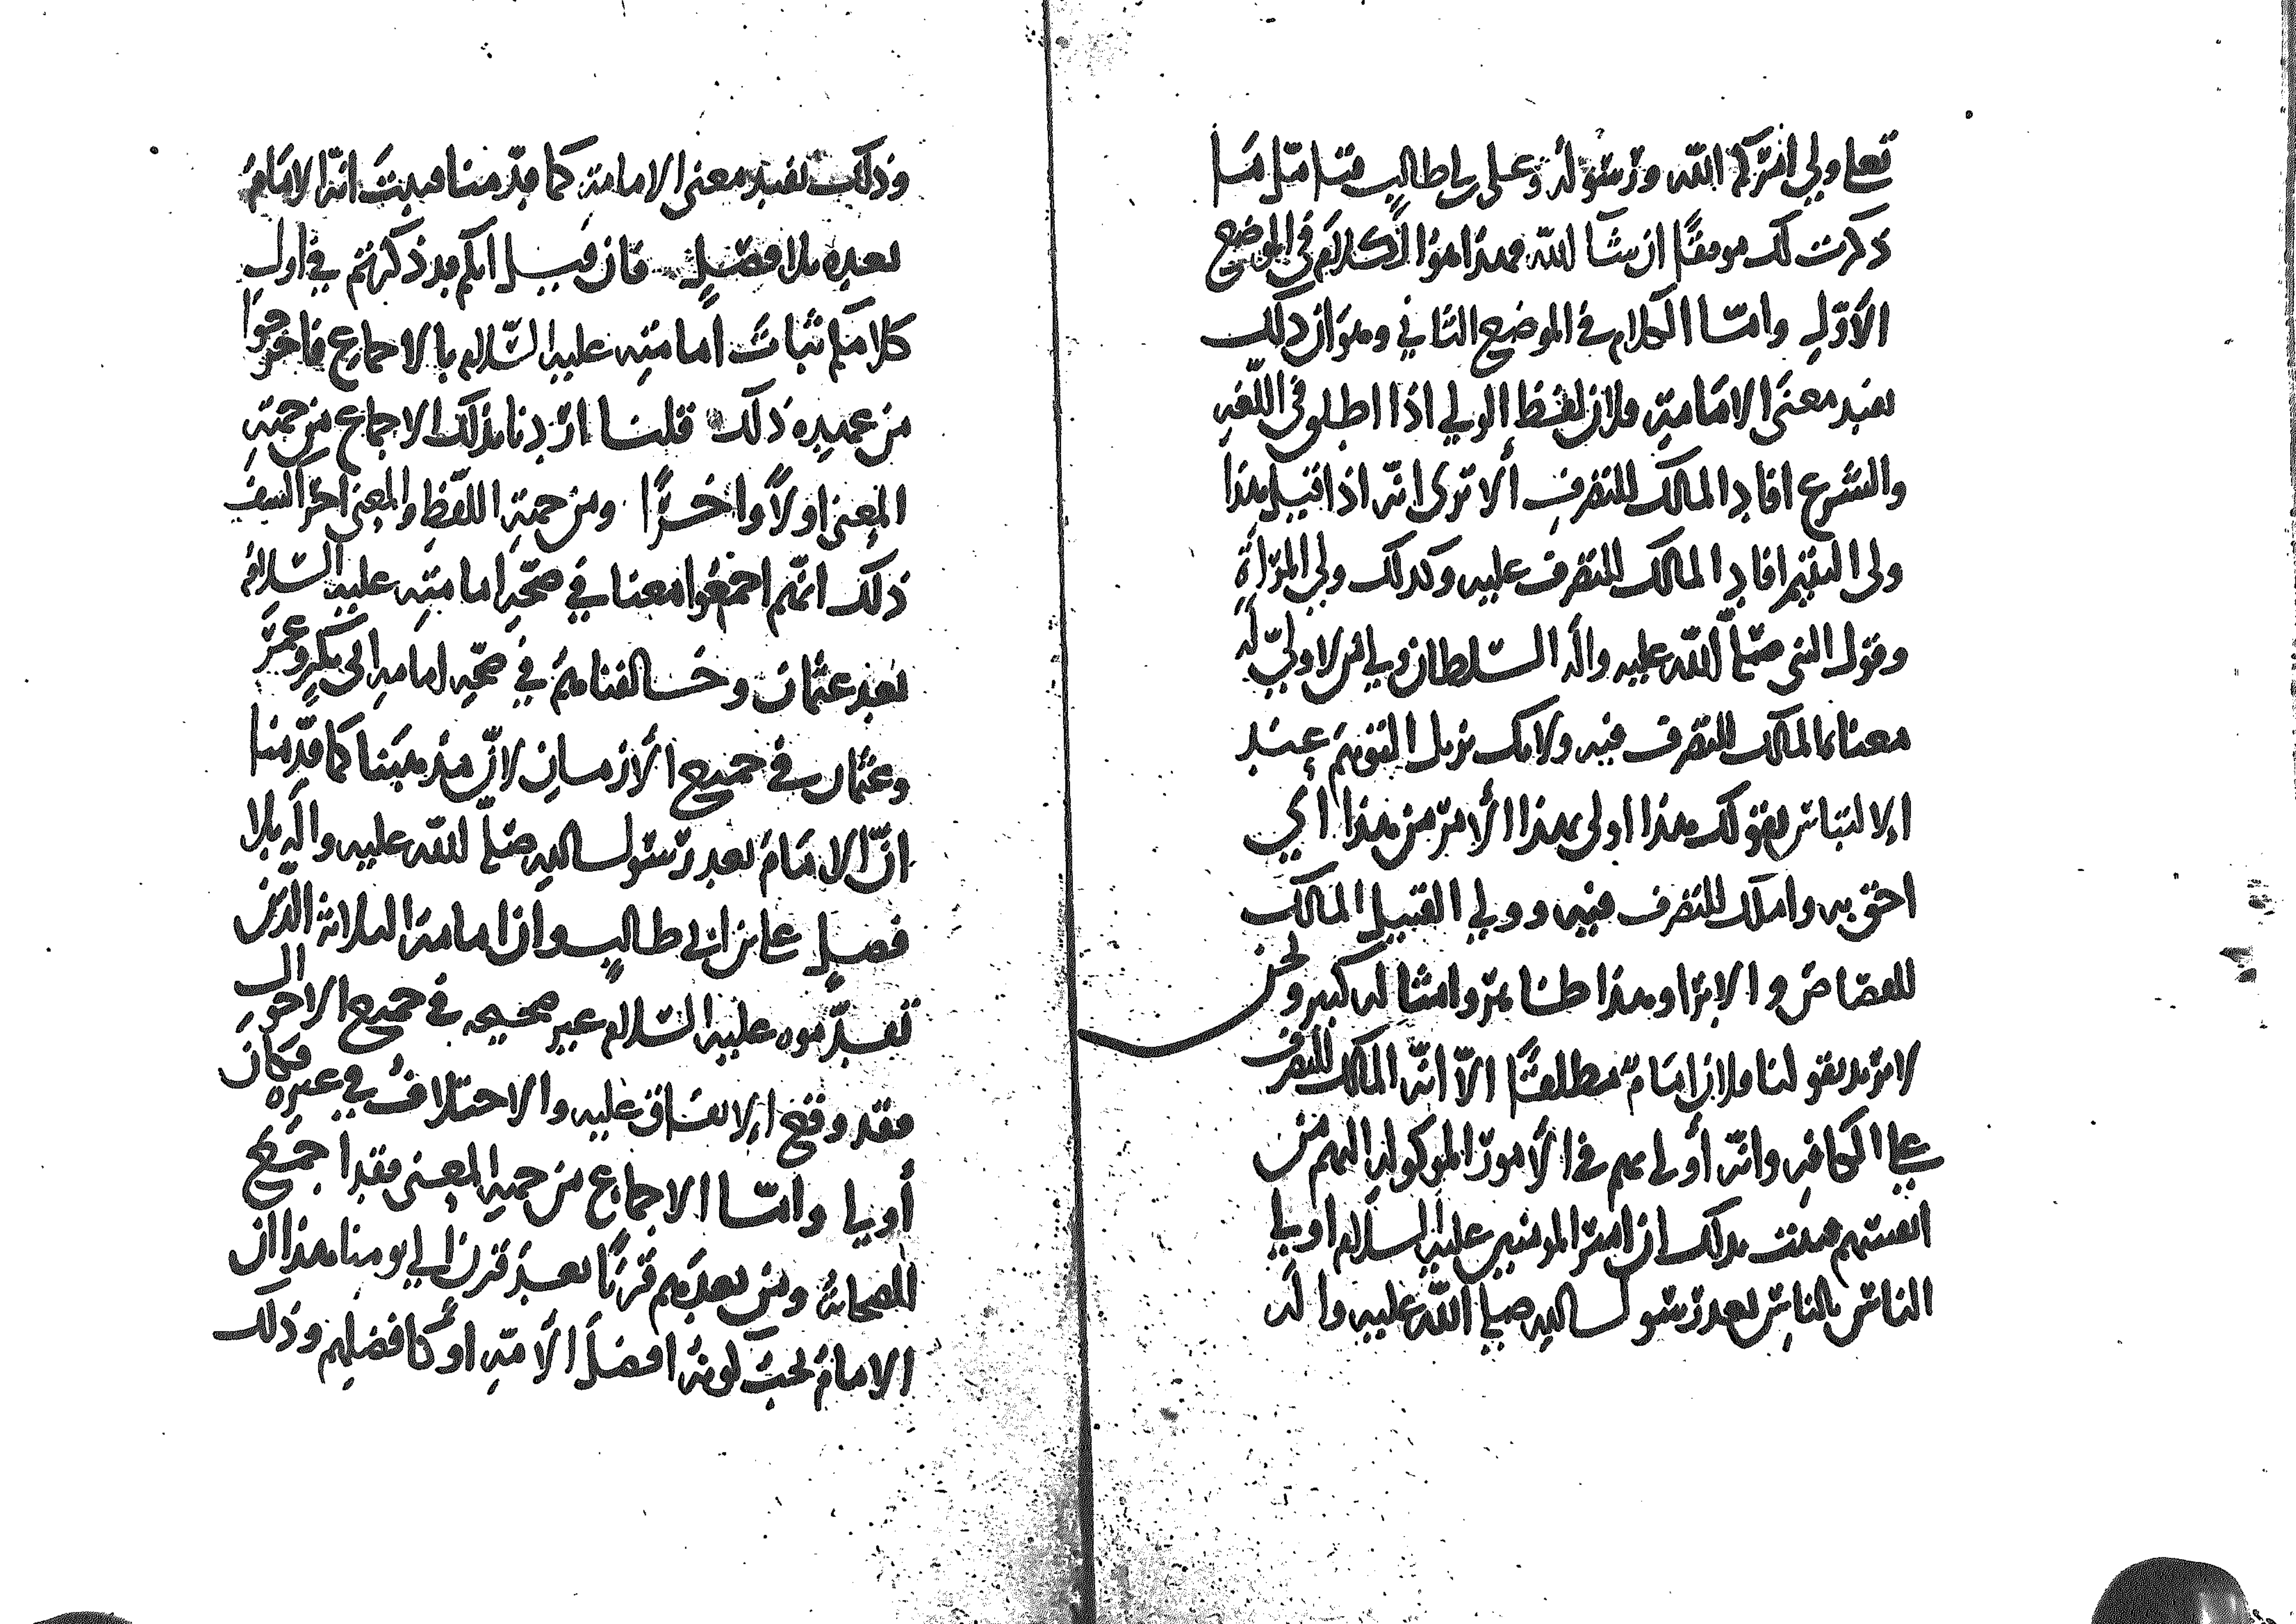 تعلى ولي امركم الله ورسوله وعلى بن ابي طالب فتامل ما
ذكرت لك موفقا ان شا الله فهذا هو الكلام في الموضع
الاول واما الكلام في الموضع الثاني وهو ان ذلك
يفيد معنى الامامة فلان لفظ الولي اذا اطلق في اللغة
والشرع افاد المالك للتصرف ألا ترى انه اذا قيل هذا
ولى اليتيم افاد المالك للتصرف عليه وكذلك ولي المرأة
وقول النبى صلى الله عليه واله السلطان ولي من لا ولي له
معناه المالك للتصرف فيه ولانك تزيل التوهم عند
الالتباس بقولك هذا اولى بهذا الأمر من هذا أي
احق به واملك للتصرف فيه وولي القتيل المالك
للقصاص والابرا وهذا ظاهر وامثاله كبير ونحن
لا نريد بقولنا فلان امام مطلقا الا انه المالك للتصرف
على الكافة وانه أولى بهم في الأمور الموكولة اليهم من
انفسهم فثبت بذلك ان امير المومنين عليه السلام اولى
الناس بالناس بعد رسول الله صلى الله عليه واله
وذلك يفيد معنى الامامة كما قدمنا فيثبت انه الامام
بعده بلا فصل فان قيل انكم قد ذكرتم في اول
كلامكم ثبات امامته عليه السلام بالاجماع فاخرجوا
من عهدة ذلك قلنا اردنا بذلك الاجماع من جهة
المعنى اولا واخرا ومن جهة اللفظ والمعنى اخرا
ذلك انهم اجمعوا معنا في صحة امامته عليه السلام
بعد عثمان وخالفناهم في صحة امامة ابى بكر وعمر
وعثمان في جميع الأزمان لان مذهبنا كما قدمنا
ان الامام بعد رسول الله صلى الله عليه واله بلا
فصل على بن ابي طالب وان امامة الثلاثة الذين
تقدموه عليه السلام غير صحيحة في جميع الاحوال
فقد وقع الاتفاق عليه والاختلاف في غيره فكان
أولى واما الاجماع من جهة المعنى فقد اجمع
الصحابة ومن بعدهم قرنا بعد قرن الى يومنا هذا ان
الامام يجب كونه افضل الأمة او كافضلهم وذلك